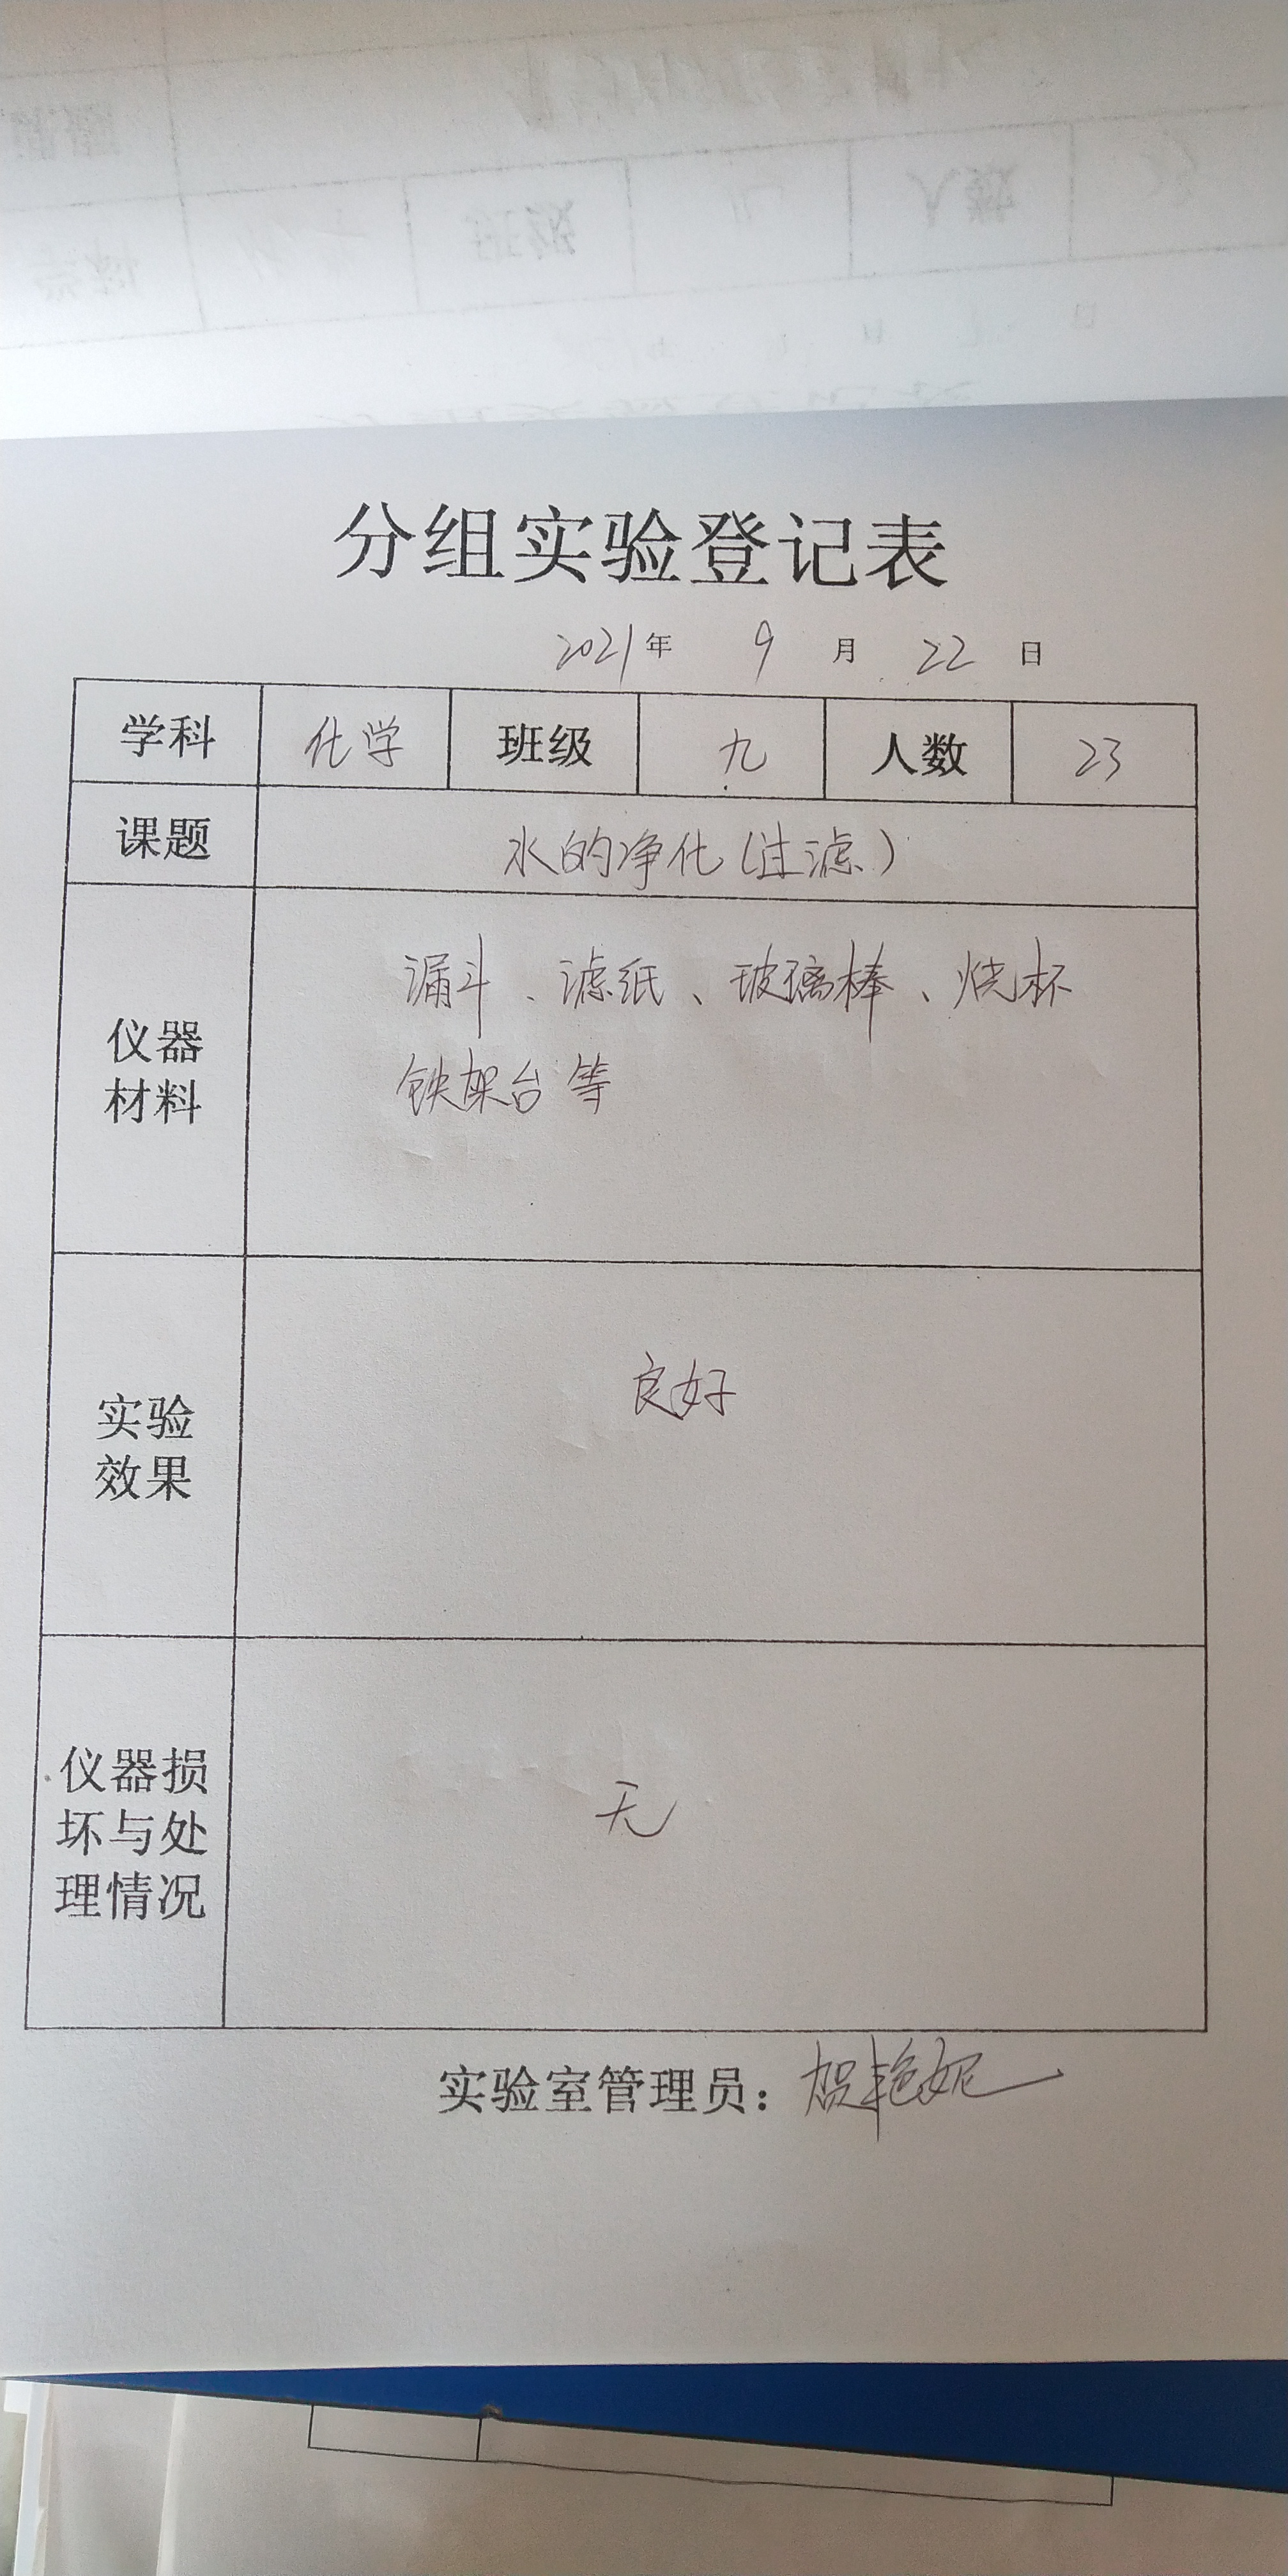 分组实验登记表
2021年 9月22日
学科 化学 班级 九 人数 23
课题 水的净化(过滤)
仪器
材料
漏斗、滤纸、玻璃棒、烧杯
铁架台等
实验
效果
良好
仪器损
坏与处
理情况
无
实验室管理员：贺艳妮